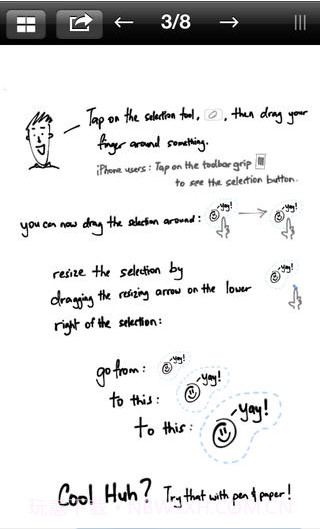 3/8
Tap on the selection tool, , then drag your
finger around something.
iPhone users: Tap on the toolbar grip
to see the selection button.
yay! yay!
you can now drag the selection around:
resize the selection by
yay!
dragging the resizing arrow on the lower
right of the selection:
go from: yay!
to this: yay!
to this: yay!
Cool Huh? Try that with pen & paper!